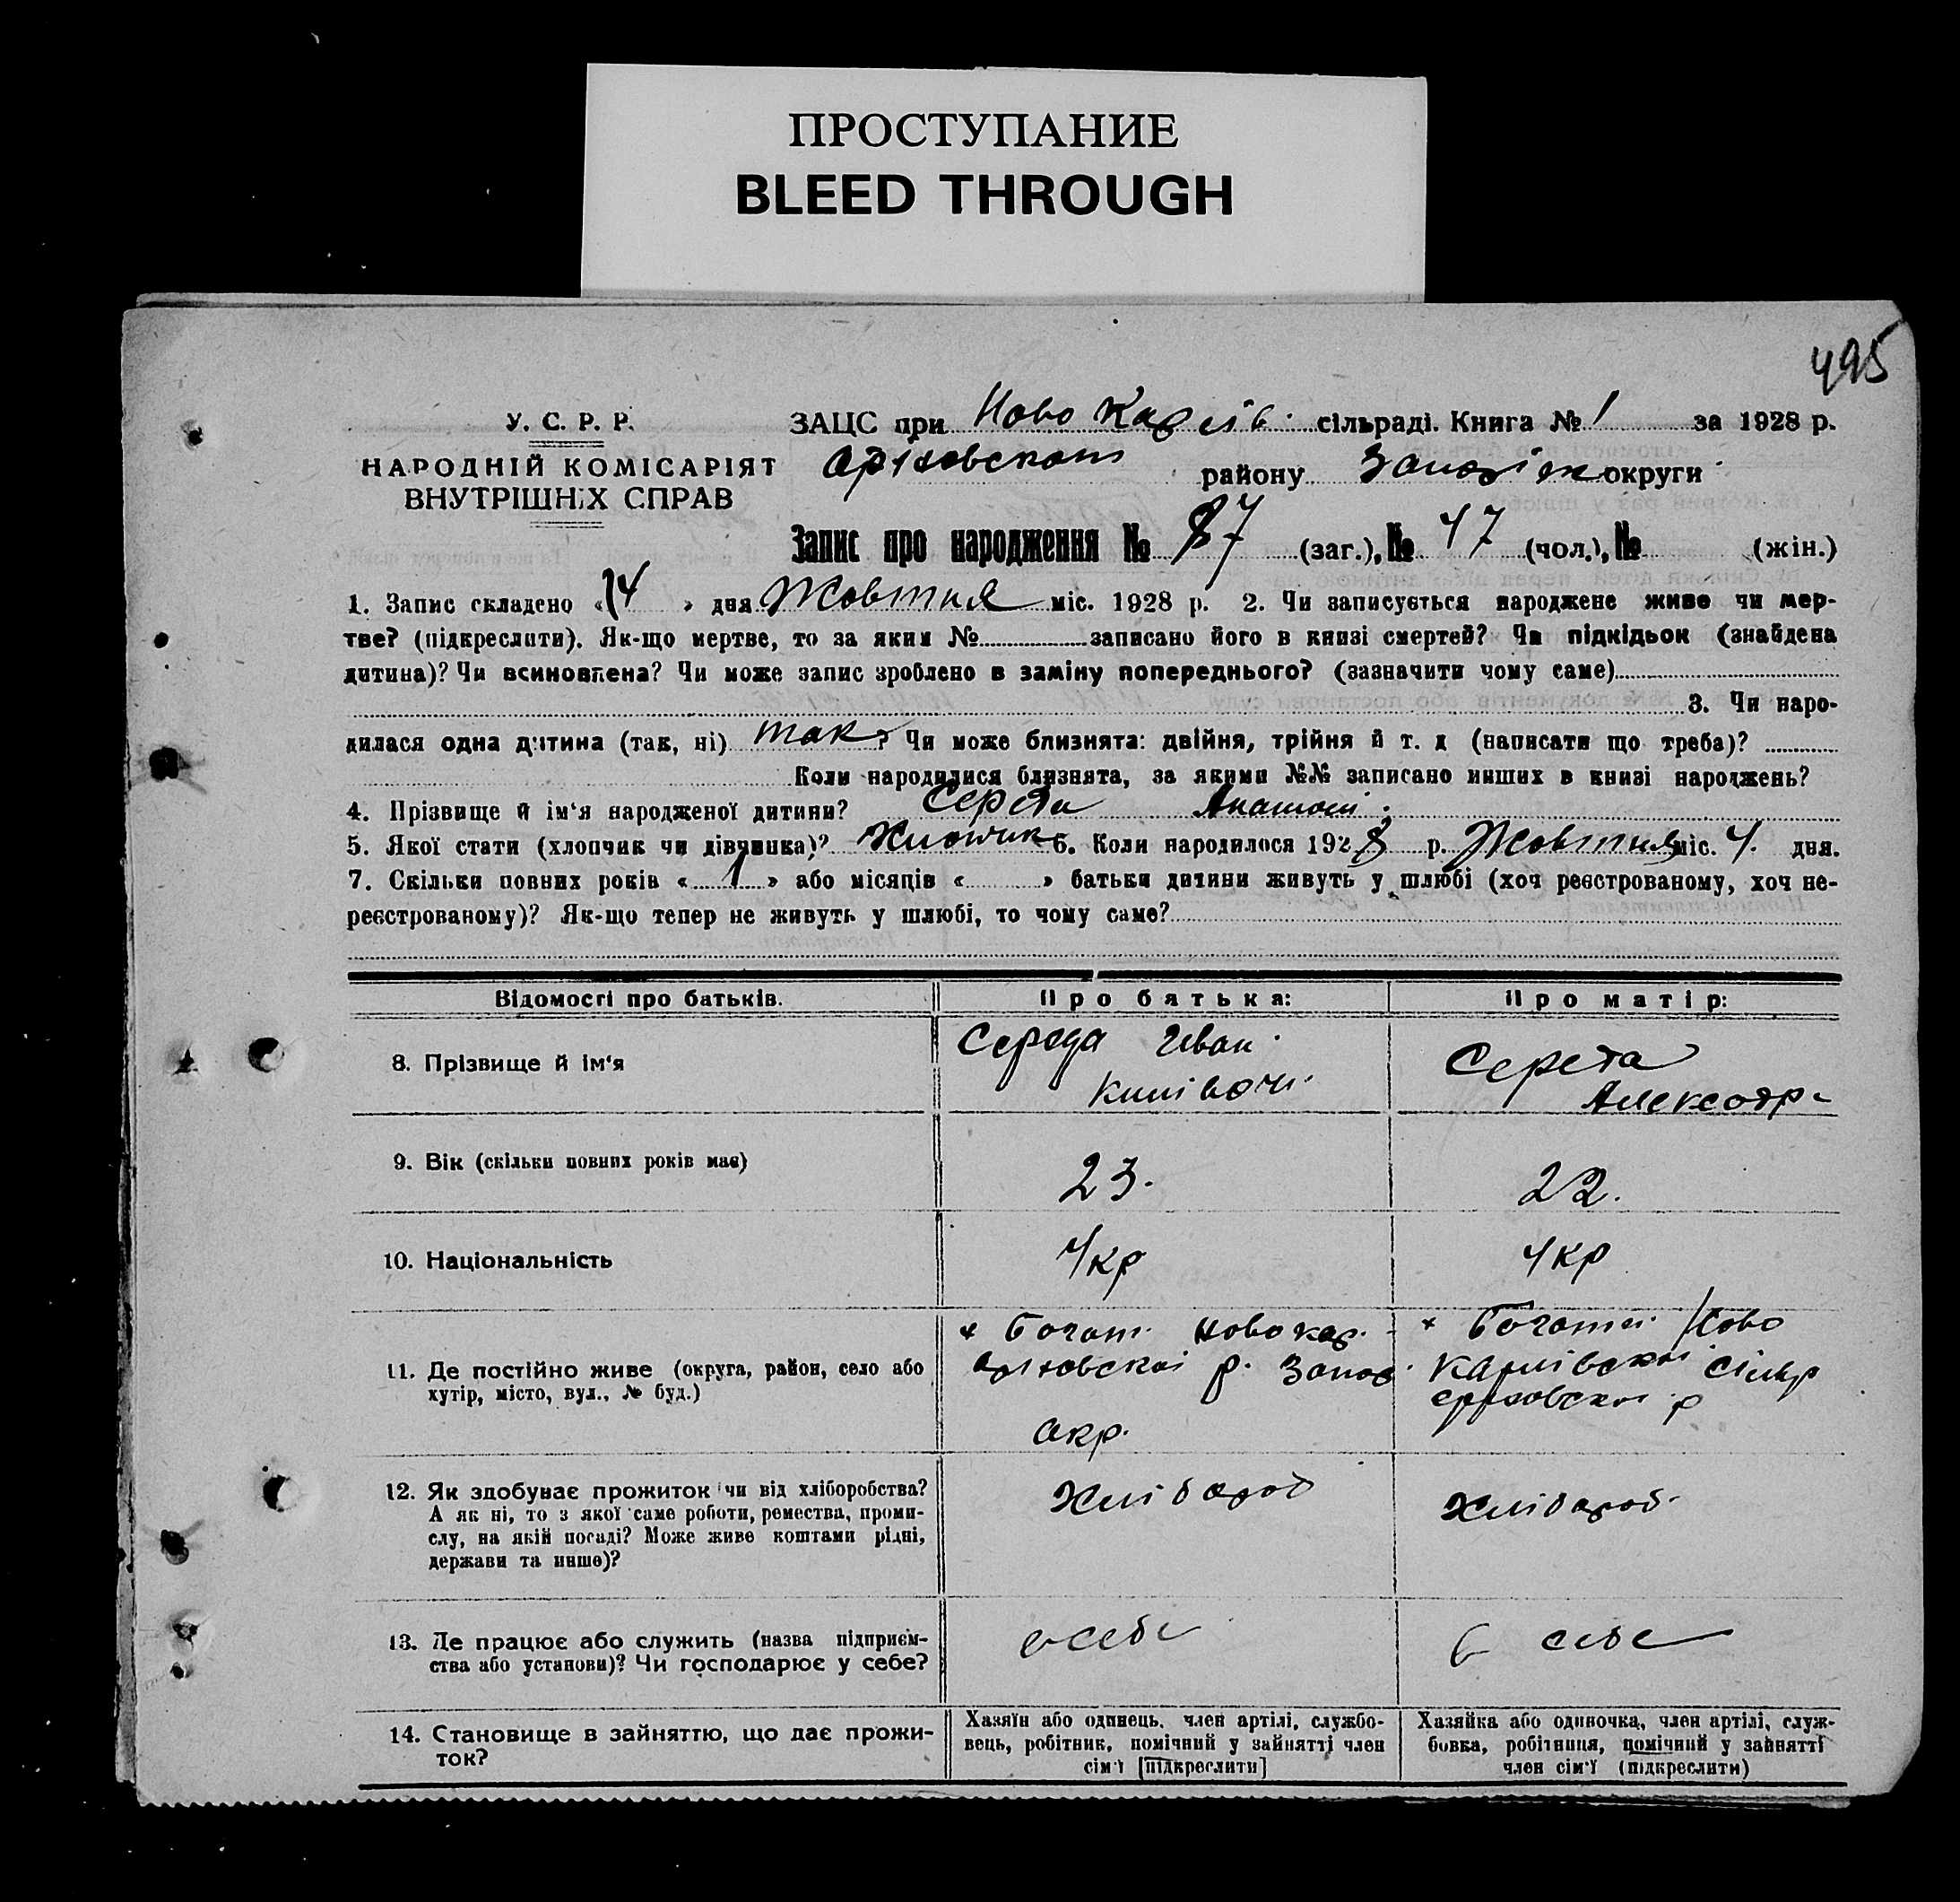 ПРОСТУПАНИЕ
BLEED THROUGH
495
У. С. Р. Р.
НАРОДНІЙ КОМІСАРІЯТ
ВНУТРІШНІХ СПРАВ
ЗАЦС при Ново Карлів. сільраді. Книга № 1 за 1928 р.
району округи
Запис про народження № 87 (заг.), № 47 (чол.), № (жін.)
1. Запис складено «14» дня Жовтня міс. 1928 р. 2. Чи записується народжене живе чи мер-
тве? (підкреслити). Як-що мертве, то за яким № записано його в книзі смертей? Чи підкідьок (знайдена
дитина)? Чи всиновлена? Чи може запис зроблено в заміну попереднього? (зазначити чому саме)
3. Чи наро-
дилася одна дитина (так, ні) так? Чи може близнята: двійня, трійня й т. д (написати що треба)?
Коли народилися близнята, за якими №№ записано инших в книзі народжень?
4. Прізвище й ім‘я народженої дитини? Середа Анатолі.
5. Якої статі (хлопчик чи дівчинка)? Хлопчик 6. Коли народилося 1928 р. Жовтня міс. 4. дня.
7. Скільки повних років « 1 » або місяців « » батьки дитини живуть у шлюбі (хоч реєстрованому, хоч не-
реєстрованому)? Як-що тепер не живуть у шлюбі, то чому саме?
Відомості про батьків. Про батька: Про матір:
8. Прізвище й ім‘я Середа Иван Серета Александр
9. Вік (скільки повних років має) 23. 22.
10. Національність Укр Укр
11. Де постійно живе (округа, район, село або
хутір, місто, вул., № буд.)
х Богат. Новокар. р. Запор. окр.
х Богати. Ново Карлівскої сільр р
12. Як здобуває прожиток чи від хліборобства?
А як ні, то з якої саме роботи, ремества, проми-
слу, на якій посаді? Може живе коштами рідні,
держави та инше)?
Хлібороб Хлібороб.
13. Де працює або служить (назва підприєм-
ства або установи)? Чи господарює у себе?
в себе в себе
14. Становище в зайняттю, що дає прожи-
ток?
Хазяїн або одинець, член артілі, службо-
вець, робітник, помічний у зайнятті член
сім‘ї [підкреслити]
Хазяйка або одиночка, член артілі, служ-
бовка, робітниця, помічний у зайнятті
член сім‘ї (підкреслити)